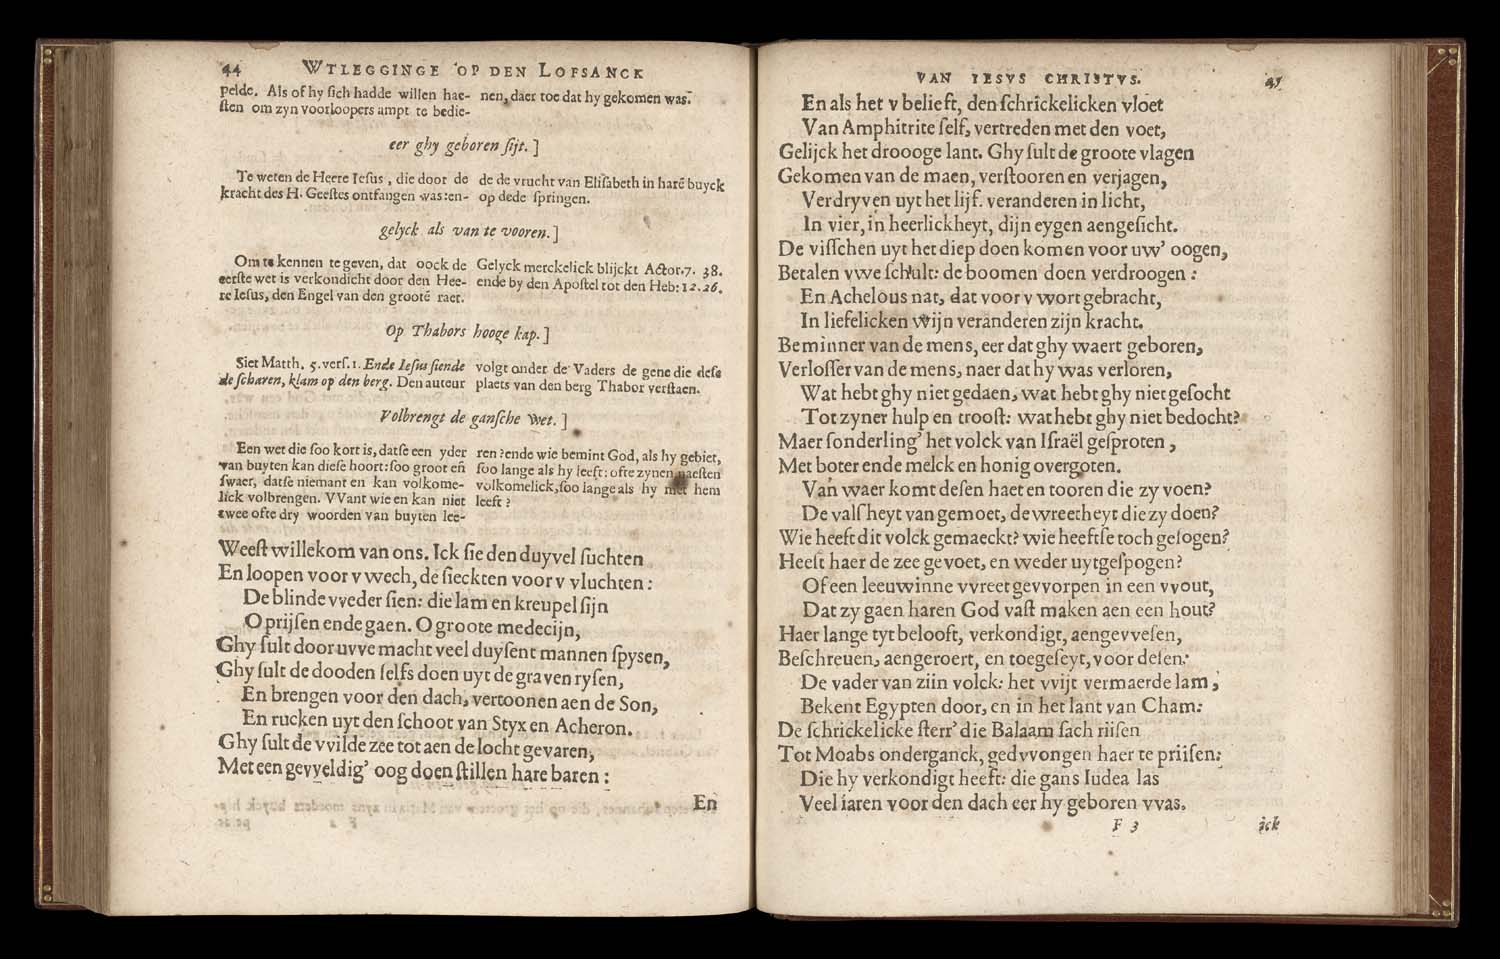 44 WTLEGGINGE OP DEN LOFSANCK
pelde. Als of hy sich hadde willen hae-
sten om zyn voorloopers ampt te bedie-
nen, daer toe dat hy gekomen was.
eer ghy geboren sijt. ]
Te weten de Heere Iesus, die door de
kracht des H. Geestes ontfangen was: en-
de de vrucht van Elisabeth in harē buyck
op dede springen.
gelyck als van te vooren. ]
Om te kennen te geven, dat oock de
eerste wet is verkondicht door den Hee-
re Iesus, den Engel van den grootē raet.
Gelyck merckelick blijckt Actor. 7. 38.
ende by den Apostel tot den Heb: 12. 26.
Op Thabors hooge kap. ]
Siet Matth. 5. vers. 1. Ende Iesus siende
de scharen, klam op den berg. Den auteur
volgt onder de Vaders de gene die dese
plaets van den berg Thabor verstaen.
Volbrengt de gansche wet. ]
Een wet die soo kort is, datse een yder
van buyten kan diese hoort: soo groot eñ
swaer, datse niemant en kan volkome-
lick volbrengen. VVant wie en kan niet
twee ofte dry woorden van buyten lee-
ren? ende wie bemint God, als hy gebiet,
soo lange als hy leeft: ofte zynen naesten
volkomelick, soo lange als hy met hem
leeft?
Weest willekom van ons. Ick sie den duyvel suchten
En loopen voor v wech, de sieckten voor v vluchten:
De blinde vveder sien: die lam en kreupel sijn
Oprijsen ende gaen. O groote medecijn,
Ghy sult door uvve macht veel duysent mannen spysen,
Ghy sult de dooden selfs doen uyt de graven rysen,
En brengen voor den dach, vertoonen aen de Son,
En rucken uyt den schoot van Styx en Acheron.
Ghy sult de vvilde zee tot aen de locht gevaren,
Met een gevveldig' oog doen stillen hare baren:
En
VAN IESVS CHRISTVS. 45
En als het v belieft, den schrickelicken vloet
Van Amphitrite self, vertreden met den voet,
Gelijck het droooge lant. Ghy sult de groote vlagen
Gekomen van de maen, verstooren en verjagen,
Verdryven uyt het lijf. veranderen in licht,
In vier, in heerlickheyt, dijn eygen aengesicht.
De visschen uyt het diep doen komen voor uw' oogen,
Betalen vwe schult: de boomen doen verdroogen:
En Achelous nat, dat voor v wort gebracht,
In liefelicken wijn veranderen zijn kracht.
Beminner van de mens, eer dat ghy waert geboren,
Verlosser van de mens, naer dat hy was verloren,
Wat hebt ghy niet gedaen, wat hebt ghy niet gesocht
Tot zyner hulp en troost: wat hebt ghy niet bedocht?
Maer sonderling' het volck van Israël gesproten,
Met boter ende melck en honig overgoten.
Van waer komt desen haet en tooren die zy voen?
De valsheyt van gemoet, de wreetheyt die zy doen?
Wie heeft dit volck gemaeckt? wie heeftse toch gesogen?
Heeft haer de zee gevoet, en weder uytgespogen?
Of een leeuwinne vvreet gevvorpen in een vvout,
Dat zy gaen haren God vast maken aen een hout?
Haer lange tyt belooft, verkondigt, aengevvesen,
Beschreuen, aengeroert, en toegeseyt, voor desen:
De vader van ziin volck: het vvijt vermaerde lam,
Bekent Egypten door, en in het lant van Cham:
De schrickelicke sterr' die Balaam sach riisen
Tot Moabs onderganck, gedvvongen haer te priisen:
Die hy verkondigt heeft: die gans Iudea las
Veel iaren voor den dach eer hy geboren vvas.
F 3 ick